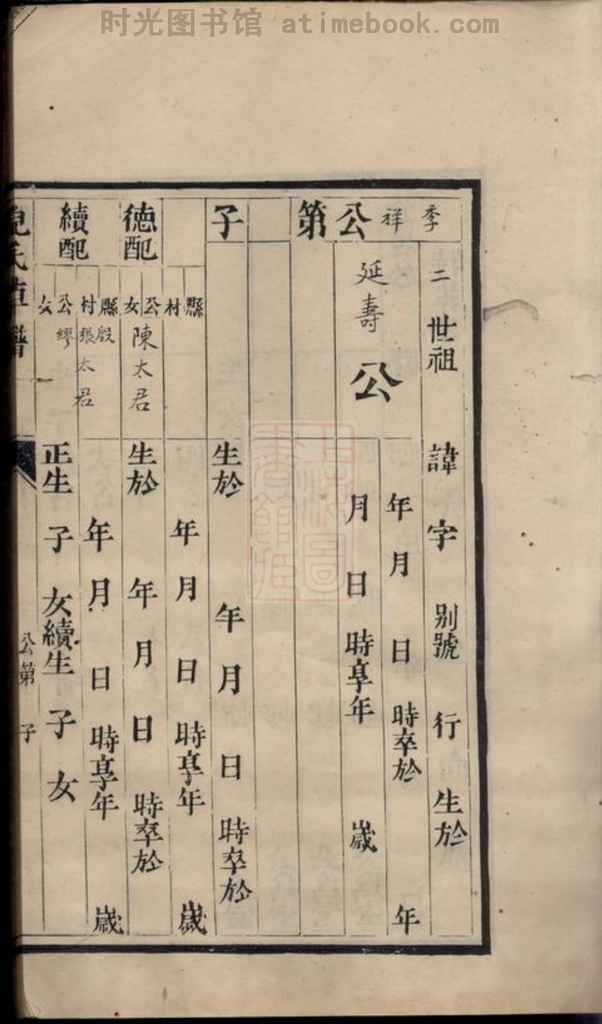 时光图书馆 atimebook.com
季祥公第 子
二世祖 諱 字 別號 行 生於
年 月 日 時卒於 年
延壽公 月 日 時享年 歲
生於 年 月 日 時卒於
縣 村 年 月 日 時享年 歲
德配 公女 陳太君 生於 年 月 日 時卒於
縣 村 年 月 日 時享年 歲
續配 公女 繆 張太君 正生 子 女續生 子 女
氏 譜 公第 子